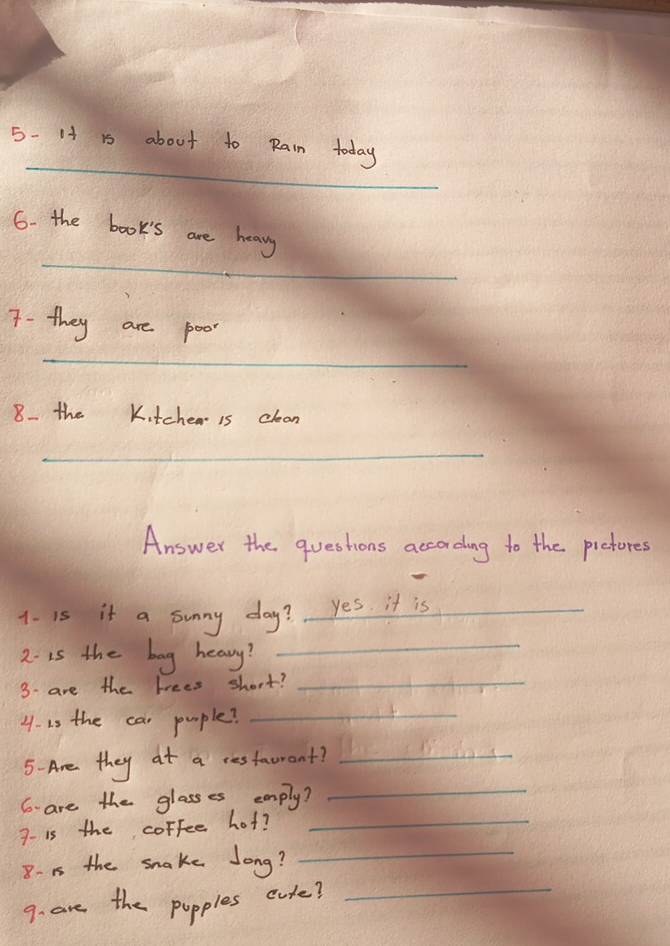 5- it is about to Rain today
6- the book's are heavy
7- they are poor
8- the Kitchen is clean
Answer the questions according to the pictures
1- is it a sunny day? yes. it is
2- is the bag heavy?
3- are the trees short?
4- is the car purple?
5- Are they at a restaurant?
6- are the glasses emply?
7- is the coffee hot?
8- is the snake long?
9- are the pupples cute?